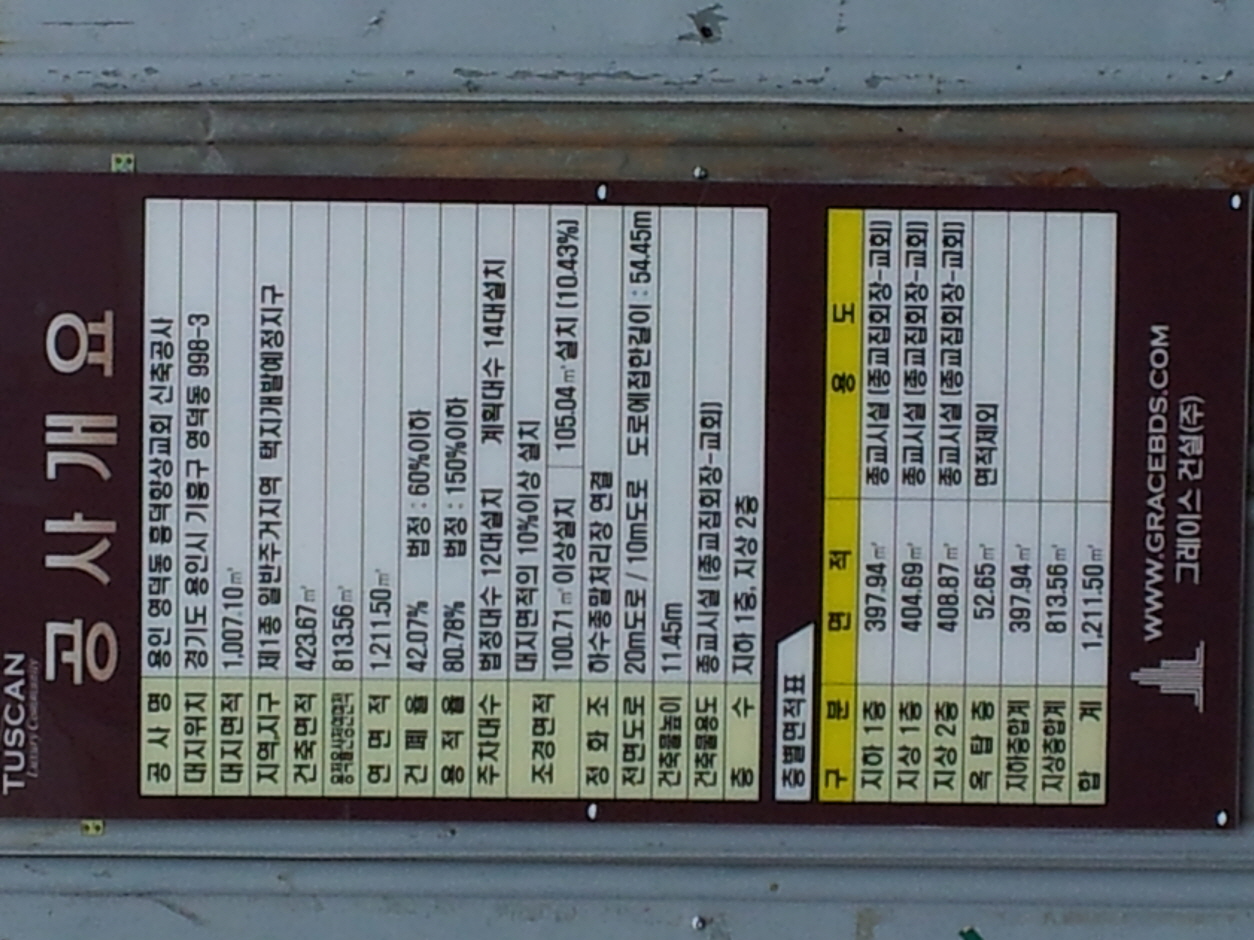 TUSCAN
Luxury Community
공사개요
공사명 용인 영덕동 흥덕향상교회 신축공사
대지위치 경기도 용인시 기흥구 영덕동 998-3
대지면적 1,007.10㎡
지역,지구 제1종 일반주거지역 택지개발예정지구
건축면적 423.67㎡
용적율산정연면적 813.56㎡
연면적 1,211.50㎡
건폐율 42.07% 법정 : 60%이하
용적율 80.78% 법정 : 150%이하
주차대수 법정대수 12대설치 계획대수 14대설치
조경면적 대지면적의 10%이상 설치
100.71㎡이상설치 105.04㎡설치 (10.43%)
정화조 하수종말처리장 연결
전면도로 20m도로 / 10m도로 도로에접한길이 : 54.45m
건축물높이 11.45m
건축물용도 종교시설 (종교집회장-교회)
층수 지하 1층, 지상 2층
층별면적표
구분 면적 용도
지하 1층 397.94㎡ 종교시설 (종교집회장-교회)
지상 1층 404.69㎡ 종교시설 (종교집회장-교회)
지상 2층 408.87㎡ 종교시설 (종교집회장-교회)
옥탑층 52.65㎡ 면적제외
지하층합계 397.94㎡
지상층합계 813.56㎡
합계 1,211.50㎡
WWW.GRACEBDS.COM
그레이스 건설(주)